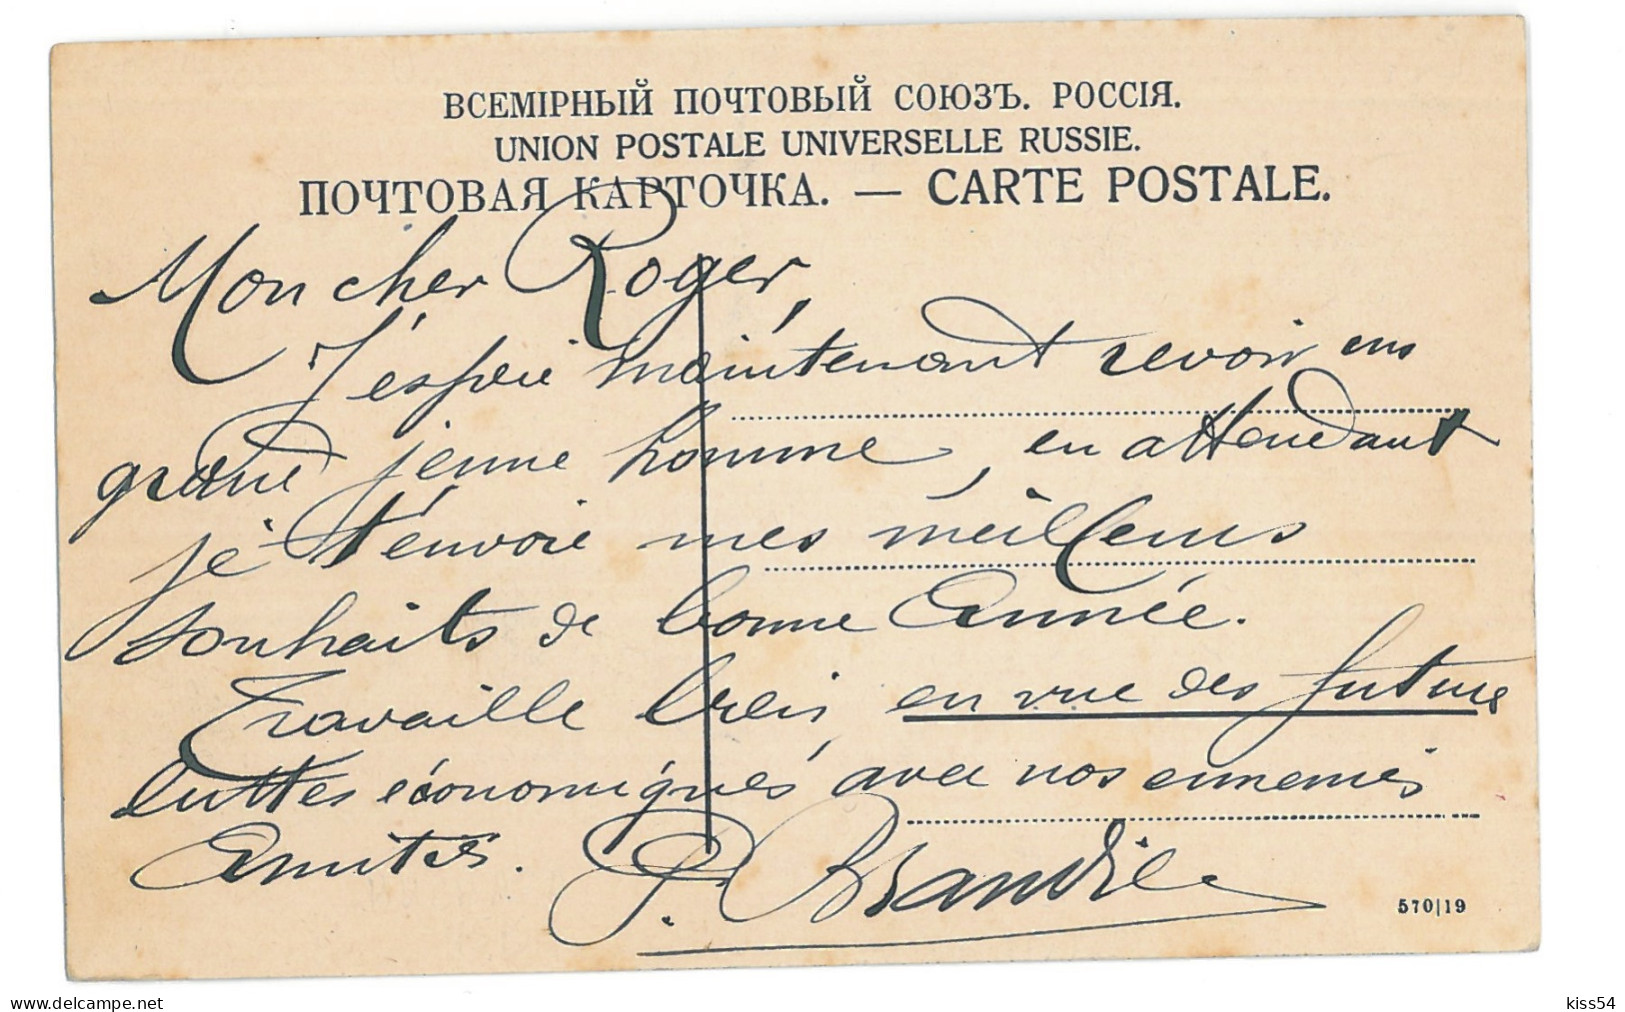 ВСЕМІРНЫЙ ПОЧТОВЫЙ СОЮЗЪ. РОССІЯ.
UNION POSTALE UNIVERSELLE RUSSIE.
ПОЧТОВАЯ КАРТОЧКА. — CARTE POSTALE.
Mon cher Roger,
J'espère maintenant revoir un
grand jeune homme, en attendant
je t'envoie mes meilleurs
souhaits de bonne Année.
Travaille bien, en vue des futures
luttes économiques avec nos ennemis
Amitiés. P.
570|19
delcampe.net
kiss54